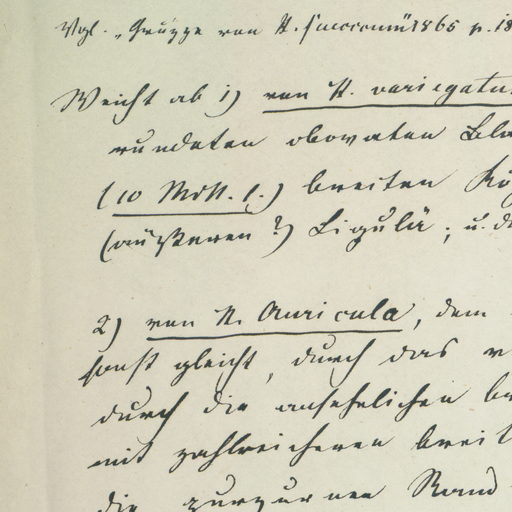 Vgl. „Gruppe von H. 1865 p. 18
Weicht ab 1) von H. variegatu
rundeten obovaten Blä
(10 Mill. l.) breiten Kö
(äußeren?) Ligulä; u. d
2) von H. Auricula, dem
sonst gleicht, durch das v
durch die ansehnlichen br
mit zahlreicheren breit
die purpurnen Rand